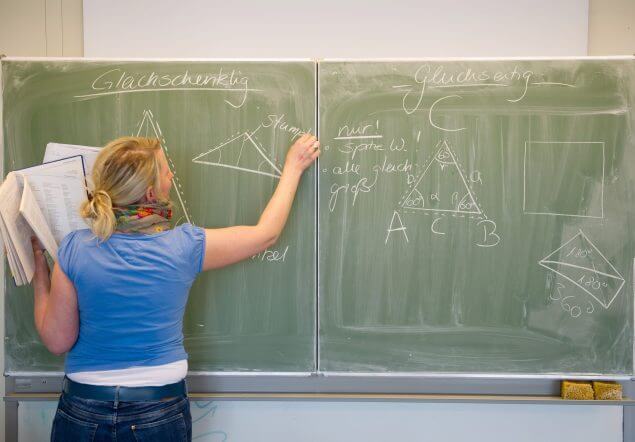 Gleichschenklig
Gleichseitig
nur!
• spitze W.
• alle gleich
groß
C
60°
b
a
60°
α
β
60°
A
C
B
180°
180°
360°